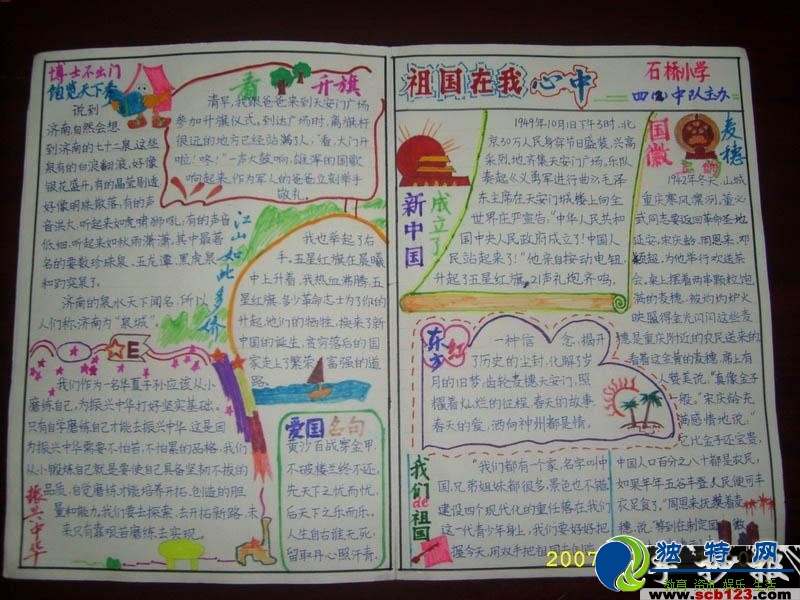 博士不出门
饱览天下春
说到
济南自然会想
到济南的七十二泉,这些
泉有的白浪翻滚,好像
银花盛开,有的晶莹剔透
好像明珠散落,有的声
音洪大,听起来如虎啸狮吼,有的声音
低细,听起来如秋雨潇潇,其中最著
名的要数珍珠泉、五龙潭、黑虎泉
和趵突泉了。
济南的泉水天下闻名,所以
人们称济南为“泉城”。
看升旗
清早,我跟爸爸来到天安门广场
参加升旗仪式,到达广场时,离旗杆
很远的地方已经站满了人,“看,大门开
啦!咚!”一声大鼓响,雄浑的国歌
响起来,作为军人的爸爸立刻举手
敬礼。
我也举起了右
手,五星红旗在晨曦
中上升着,我热血沸腾,五
星红旗,多少革命志士为了你的
升起,他们的牺牲,换来了新
中国的诞生,贫穷落后的国
家走上了繁荣富强的道
路。
江山如此多娇
E
我们作为一名华夏子孙应该从小
磨练自己,为振兴中华打好坚实基础。
只有自学磨练自己才能去振兴中华,这是因
为振兴中华需要不怕苦,不怕累的品格,我们
从小锻炼自己就是要使自己具备坚韧不拔的
品质,自觉磨炼才能培养开拓、创造的胆
量和能力,我们要去探索、去开拓新路,未
来只有靠艰苦磨练去实现。
振兴中华
爱国名句
黄沙百战穿金甲,
不破楼兰终不还,
先天下之忧而忧,
后天下之乐而乐。
人生自古谁无死;
留取丹心照汗青,
祖国在我心中
石桥小学
中队主办
新中国成立了
1949年10月1日下午3时,北
京30万人民身穿节日盛装,兴高
采烈地齐集天安门广场,乐队
奏起《义勇军进行曲》,毛泽
东主席在天安门城楼上向全
世界庄严宣告:“中华人民共和
国中央人民政府成立了!中国人
民站起来了!”他亲自按动电钮,
升起了五星红旗,21声礼炮齐鸣。
国徽上的麦穗
1942年冬天,山城
重庆寒风凛冽,董必
武同志要返回革命圣地
延安,宋庆龄、周恩来、邓
颖超,为他举行欢送茶
会,桌上摆着两串颗粒饱
满的麦穗,被灼灼炉火
映照得金光闪闪这些麦
穗是重庆附近的农民送来的
看着这金黄的麦穗,席上有
人赞美说,“真像金子
一般。”宋庆龄充
满感情地说:“
它比金子还宝贵,
中国人口百分之八十都是农民,
如果年年五谷丰登,人民便可丰
衣足食了。”周恩来抚摸着麦
穗,说:“等到
东方红
一种信念,揭开
了历史的尘封,化解了岁
月的旧梦,齿轮麦穗天安门,照
耀着灿烂的征程,春天的故事
春天的爱,洒向神州都是情。
我们de祖国
“我们都有一个家,名字叫中
国,兄弟姐妹都很多,景色也不错
建设四个现代化的重任落在我们
这一代青少年身上,我们要好好把
握今天,用双手把祖国
2007
手抄报
独特网
教育 资讯 娱乐 生活
www.scb123.com